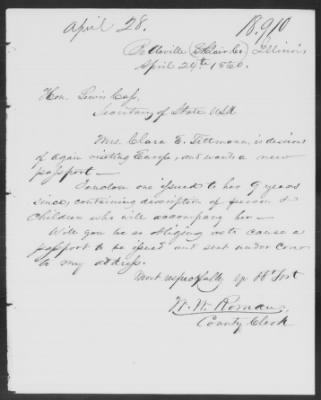 April 28.
18.910
Belleville (St Clair Co) Illinois
April 24th 1860.
Hon. Lewis Cass,
Secretary of State USA
Mrs. Clara E. Tittmann, is desirous
of again visiting Europe, and wants a new
passport —
I enclose one issued to her 9 years
since, containing description of person &
children who will accompany her —
Will you be so obliging as to cause a
passport to be issued and sent under cover
to my address.
Most respectfully yr Obt Svt
W. W. Roman,
County Clerk